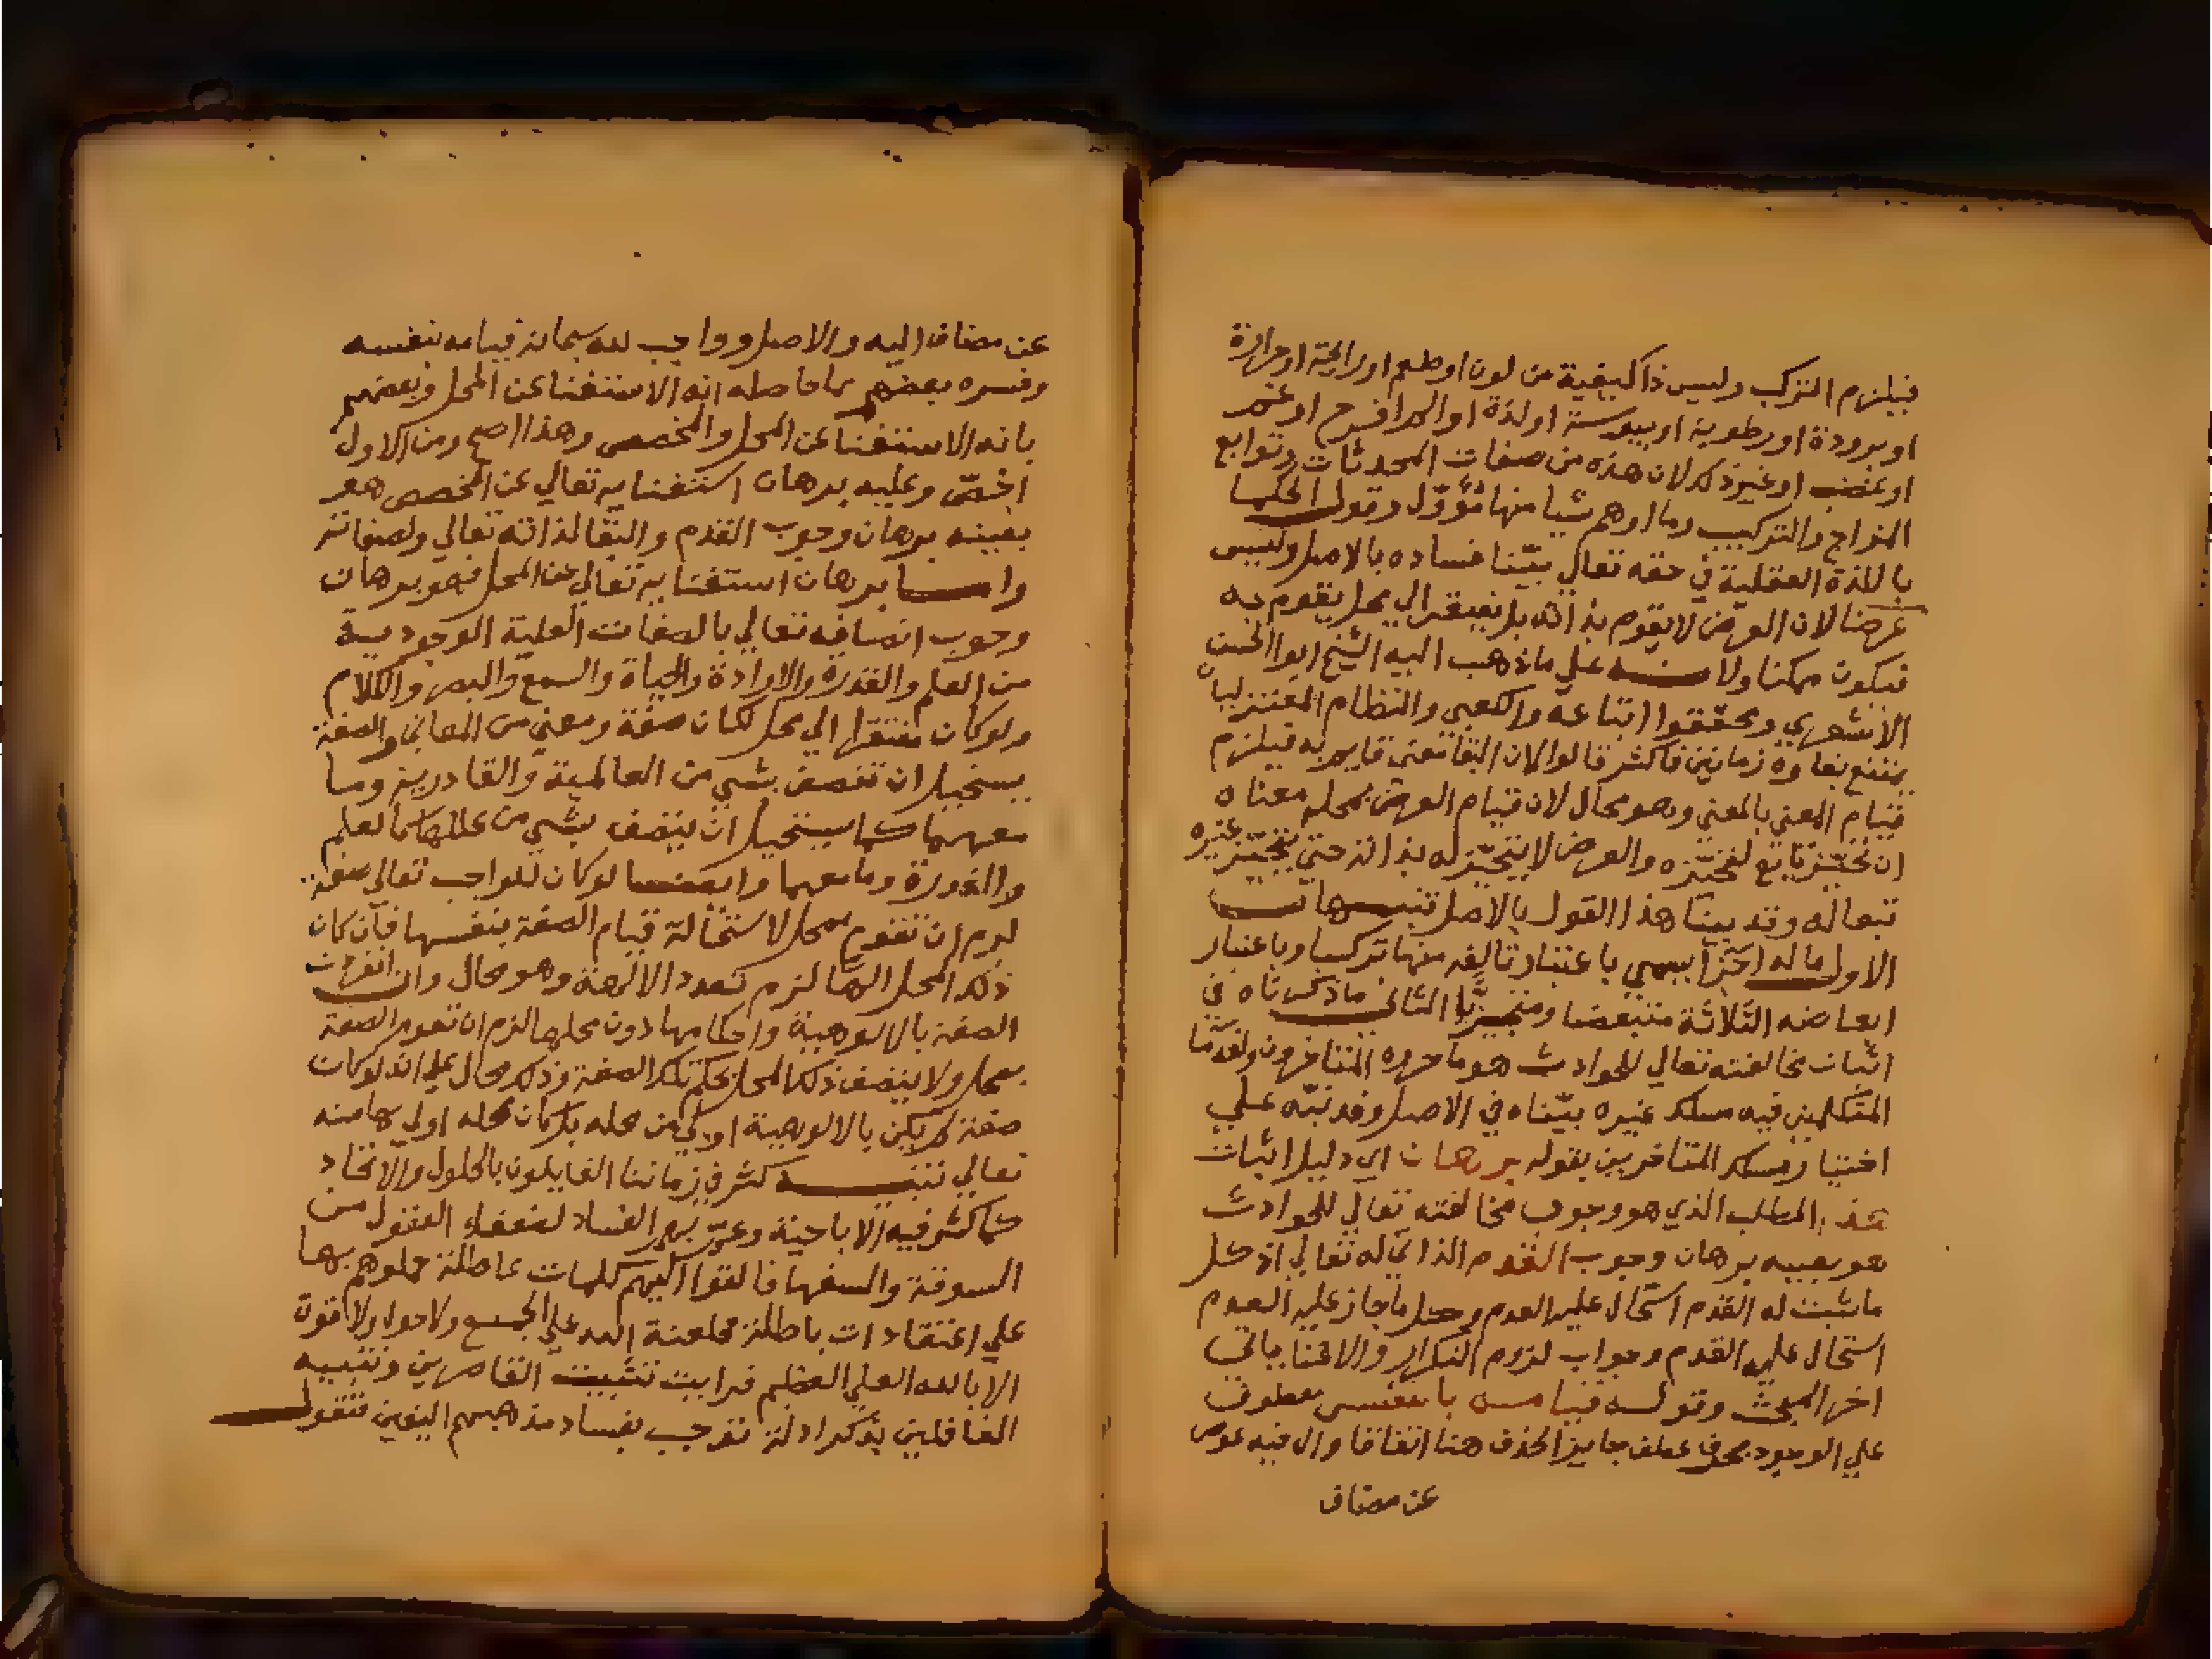 فيلزم التركب وليس ذا كيفية من لون او طعم او رايحة او حرارة
او برودة او رطوبة او يبوسة او لذة او الم او فرح او غم
او غضب او غير ذلك لان هذه من صفات المحدثات وتوابع
المزاج والتركيب وما اوهم شيا منها مؤوّل وقول الحكما
باللذة العقلية في حقه تعالي بيّنا فساده بالاصل وليس
عرضا لان العرض لا يقوم بذاته بل يفتقر الي محل يقوم به
فيكون ممكنا ولا نـه علي ما ذهب اليه الشيخ ابو الحسن
الاشعري ومحققوا اتباعه والكعبي والنظام المعتزليان
يمتنع بقاوه زمانين فاكثر قالوا لان البقا معني قايم به فيلزم
قيام المعني بالمعني وهو محال لان قيام العرض بمحله معناه
ان تحيّزه تابع لتحيّزه والعرض لا يتحيّز له بذاته حتي يتحيّز غيره
تبعا له وقد بينا هذا القول بالاصل تنبيهات
الاول ما له اجزا يسمي باعتبار تالفه منها تركيبا وباعتبار
ابعاضه الثلاثة متبعضا ومتجزيا الثاني ما ذكرناه في
اثبات مخالفته تعالي للحوادث هو ما حرره المتاخرون ولقدما
المتكلمين فيه مسلك غيره بيّناه في الاصل وقد نبّه علي
اختيار مسلك المتاخرين بقوله برهان اي دليل اثبات
هذا المطلب الذي هو وجوب مخالفته تعالي للحوادث
هو بعينه برهان وجوب القدم الذاتي له تعالي اذ كل
ما ثبت له القدم استحال عليه العدم وكل ما جاز عليه العدم
استحال عليه القدم وجواب لزوم التكرار والاغنا ياتي
اخر المبحث وقولـه قيامـه بالنفس معطوف
علي الوجود بحرف عطف جايز الحذف هنا اتفاقا وال فيه عوض
عن مضاف
عن مضاف اليه والاصل وواجب لله سبحانه قيامه بنفسه
وفسره بعضهم بما حاصله انه الاستغنا عن المحل وبعضهم
بانه الاستغنا عن المحل والمخصص وهذا اصح ومن الاول
اخصّ وعليه برهان استغنايه تعالي عن المخصص هو
بعينه برهان وجوب القدم والبقا لذاته تعالي ولصفاته
وامـا برهان استغنايه تعالي عن المحل فهو برهان
وجوب اتصافه تعالي بالصفات العلية الوجودية
من العلم والقدرة والارادة والحياة والسمع والبصر والكلام
ولو كان مفتقرا الي محل لكان صفة ومعني من المعاني والصفة
يستحيل ان تتصف بشي من العالمية والقادرية وما
معهما كما يستحيل ان يتصف بشي من عللها كالعلم
والقدرة وما معهما وايضـا لو كان للواجب تعالي صفة
لزم ان تقوم بمحل لاستحالة قيام الصفة بنفسها فان كان
ذلك المحل الها لزم تعدد الالهة وهو محال وان انفردت
الصفة بالالوهية واحكامها دون محلها لزم ان تقوم الصفة
بمحل ولا يتصف ذلك المحل بحكم تلك الصفة وذلك محال علي انه لو كان
صفة لم يكن بالالوهية اولي من محله بل كان محله اولي بها منه
تعالي تنبيـه كثر في زماننا القايلون بالحلول والاتحاد
كما كثر فيه الاباحية وعزّ بهم الفساد لضعفا العقول من
السوقة والسفها فالقوا اليهم كلمات عاطلة حملوهم بها
علي اعتقادات باطلة فلعنة الله علي الجميع ولا حول ولا قوة
الا بالله العلي العظيم فرايت تثبيت القاصرين وتنبيه
الغافلين بذكر ادلة توجب بفساد مذهبهم اليقين فنقول